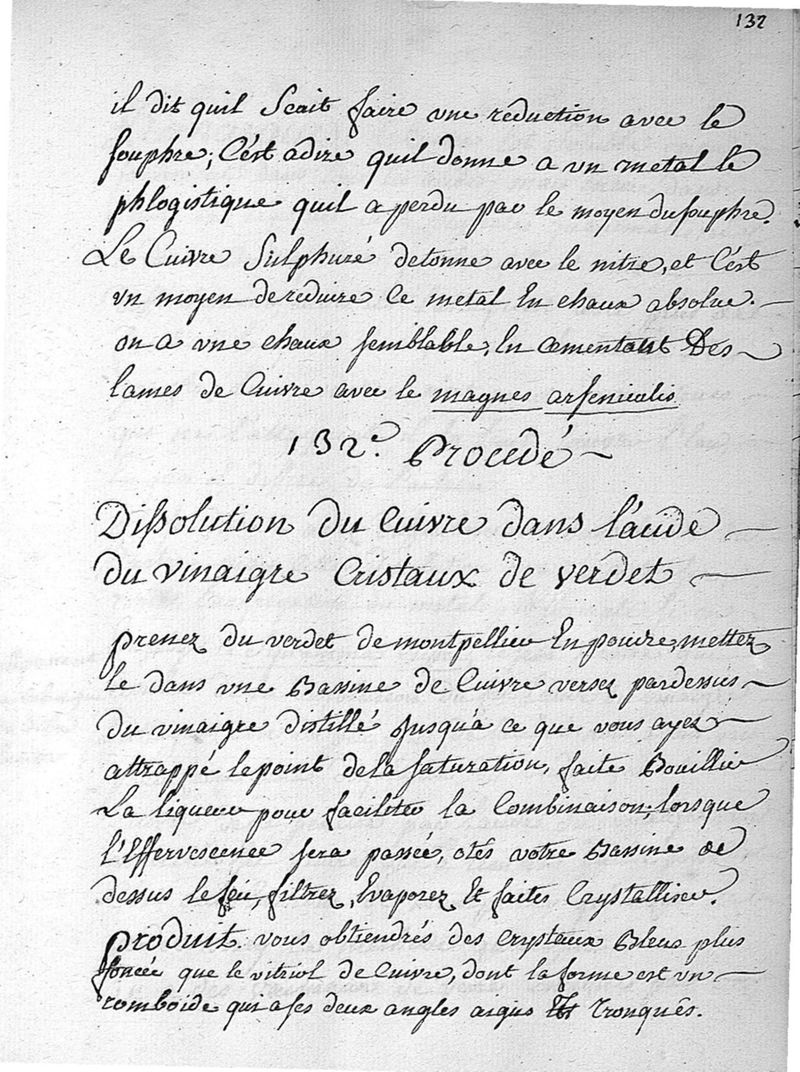 132
il dit quil Scait faire vne reduction avec le
souphre; C'est adire quil donne a vn metal le
phlogistique quil a perdu par le moyen du souphre.
Le Cuivre Sulphuré detonne avec le nitre, et C'est
vn moyen de reduire Ce metal En chaux absolue.
on a vne chaux semblable, En cementant Des
lames de Cuivre avec le magnes arsenicalis
132.e Procedé
Dissolution du Cuivre dans l'acide
du vinaigre Cristaux de verdet
prenez du verdet de montpellier En poudre, mettez
le dans vne Bassine de Cuivre versez pardessus
du vinaigre distillé Jusqu'a ce que vous ayez
attrappé le point de la saturation, faite Bouillir
La liqueur pour faciliter la Combinaison; lorsque
l'Effervescence sera passée, otés votre Bassine de
dessus le feu, filtrez, Evaporez Et faites Crystalliser.
produit. vous obtiendrés des Crystaux Bleus plus
foncée que le vitriol de Cuivre, dont la forme est vn
romboide qui a ses deux angles aigus Tronqués.